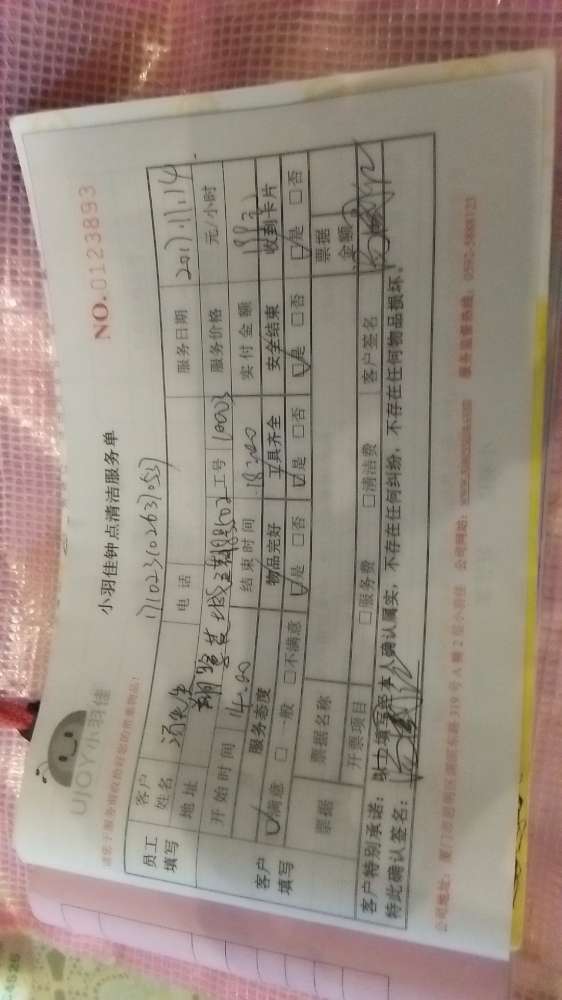 UJOY小羽佳
小羽佳钟点清洁服务单
NO.0123893
1710231026370537
请您于服务前收拾好您的贵重物品!
员工填写
客户姓名 汤先生 电话 服务日期 2017.11.14
地址 服务价格 元/小时
开始时间 14:00 结束时间 18:00 工号 10003 实付金额
客户填写
服务态度 物品完好 工具齐全 安全结束 收到卡片
☑满意 □一般 □不满意 ☑是 □否 ☑是 □否 ☑是 □否 ☑是 □否
票据 票据名称 票据金额
开票项目 □服务费 □清洁费 客户签名
客户特别承诺: 以上填写经本人确认属实,不存在任何纠纷,不存在任何物品损坏。
特此确认签名:
公司地址: 厦门市思明区湖滨东路319号A幢2层小羽佳 公司网站: 服务监督热线: 0592-5888123